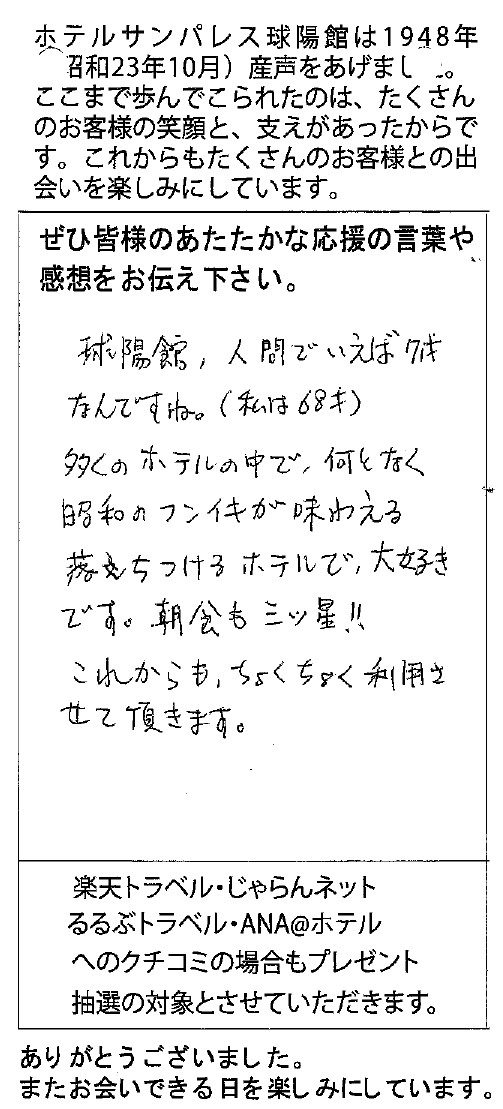 ホテルサンパレス球陽館は1948年
（昭和23年10月）産声をあげました。
ここまで歩んでこられたのは、たくさん
のお客様の笑顔と、支えがあったからで
す。これからもたくさんのお客様との出
会いを楽しみにしています。
ぜひ皆様のあたたかな応援の言葉や
感想をお伝え下さい。
球陽館，人間でいえば
なんですね。（私は68才）
多くのホテルの中で，何となく
昭和のフンイキが味わえる
落ちつけるホテルで，大好き
です。朝食も三ツ星!!
これからも，ちょくちょく利用さ
せて頂きます。
楽天トラベル・じゃらんネット
るるぶトラベル・ANA@ホテル
へのクチコミの場合もプレゼント
抽選の対象とさせていただきます。
ありがとうございました。
またお会いできる日を楽しみにしています。